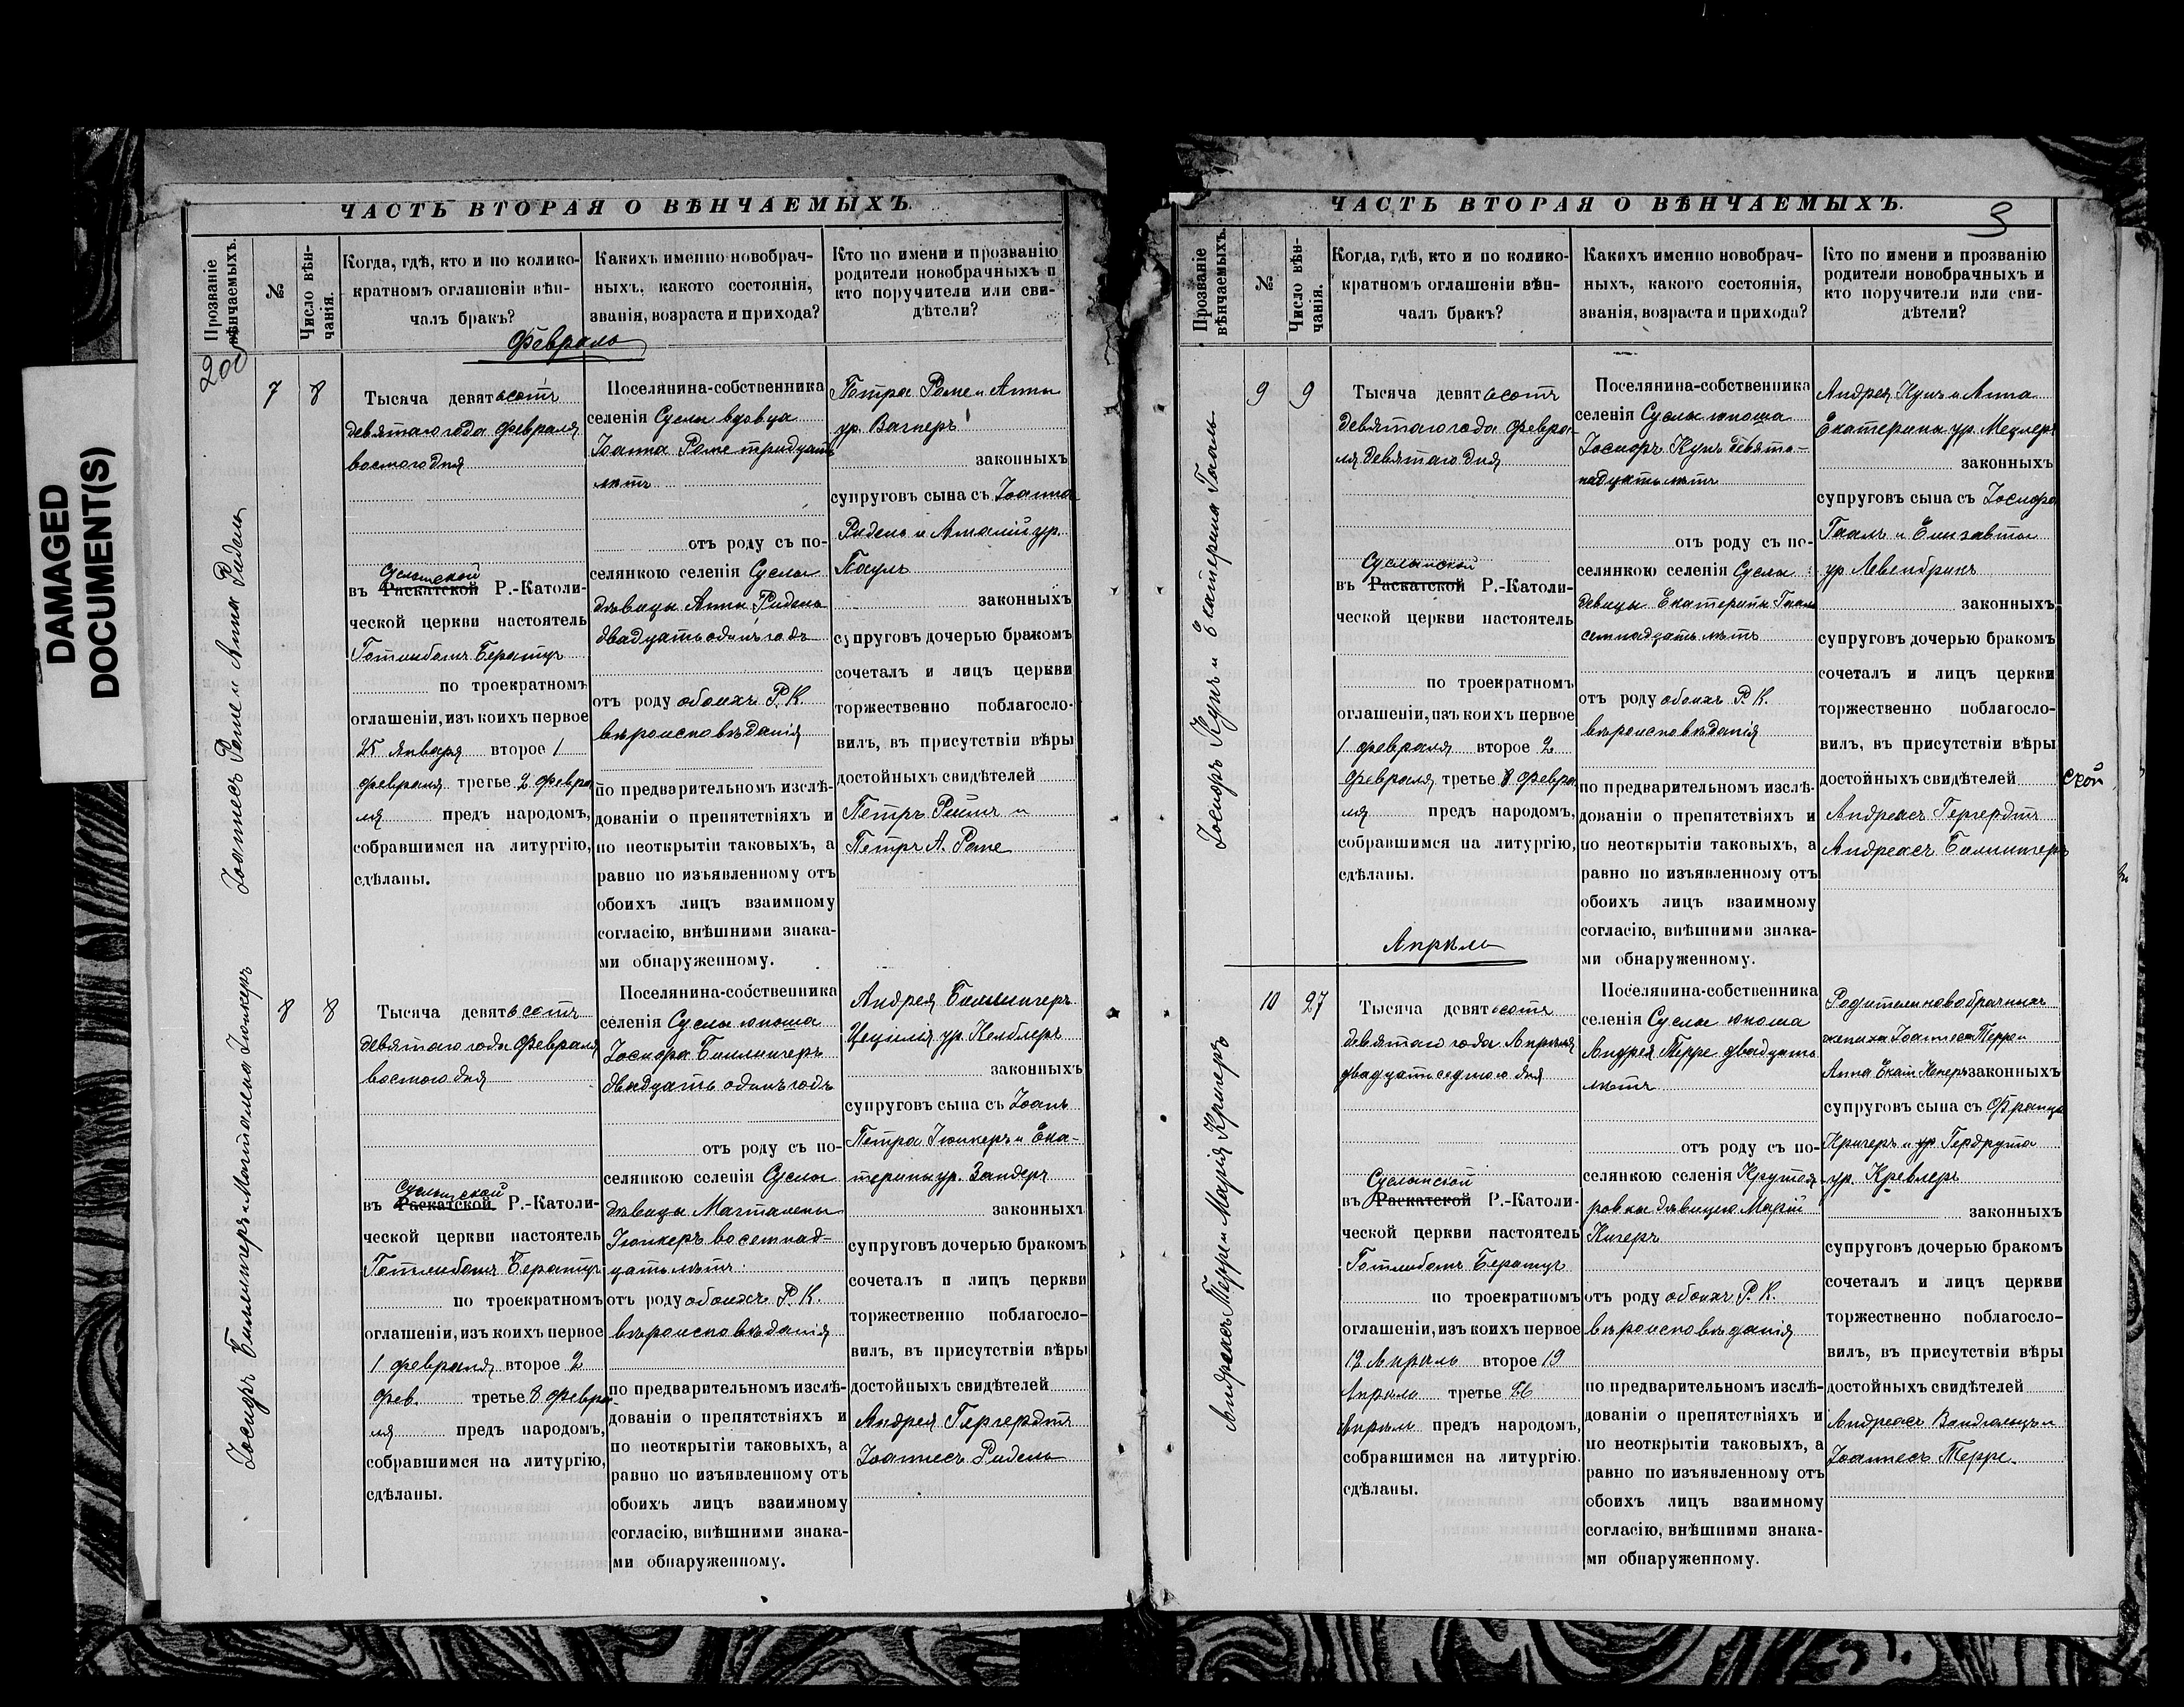 DAMAGED
DOCUMENT(S)
ЧАСТЬ ВТОРАЯ О ВѢНЧАЕМЫХЪ.
Прозваніе вѣнчаемыхъ.
№
Число вѣн-
чанія.
Когда, гдѣ, кто и по колико-
кратномъ оглашеніи вѣн-
чалъ бракъ?
Какихъ именно новобрач-
ныхъ, какого состоянія,
званія, возраста и прихода?
Кто по имени и прозванію
родители новобрачныхъ и
кто поручители или сви-
дѣтели?
Февраль
Іоаннесъ Роме и Анна Ридель
7
8
Тысяча девятьсотъ
девятаго года Февраля
восмого дня
въ Суслынской Раскатской Р.-Католи-
ческой церкви настоятель
Готлибъ Берацъ
по троекратномъ
оглашеніи, изъ коихъ первое
25 Января второе 1
февраля третье 2 февра
ля предъ народомъ,
собравшимся на литургію,
сдѣланы.
Поселянина-собственника
селенія Суслы вдовца
Іоанна Роме тридцать
лѣтъ
отъ роду съ по-
селянкою селенія Суслы
дѣвицы Анны Ридель
двадцать одинъ годъ
отъ роду обоихъ Р. К.
вѣроисповѣданія
по предварительномъ изслѣ-
дованіи о препятствіяхъ и
по неоткрытіи таковыхъ, а
равно по изъявленному отъ
обоихъ лицъ взаимному
согласію, внѣшними знака-
ми обнаруженному.
Петра Роме и Анны
ур. Вагнеръ
законныхъ
супруговъ сына съ Іоанна
Ридель и Амаліи ур.
Пауль
законныхъ
супруговъ дочерью бракомъ
сочеталъ и лицъ церкви
торжественно поблагосло-
вилъ, въ присутствіи вѣры
достойныхъ свидѣтелей
Петръ и
Петръ А. Роме
Іосифъ Биллингеръ и Магталена Іюнкеръ
8
8
Тысяча девятьсотъ
девятаго года Февраля
восмого дня
въ Суслынской Раскатской Р.-Католи-
ческой церкви настоятель
Готлибъ Берацъ
по троекратномъ
оглашеніи, изъ коихъ первое
1 февраля второе 2
фев. третье 8 февра-
ля предъ народомъ,
собравшимся на литургію,
сдѣланы.
Поселянина-собственника
селенія Суслы юноша
Іосифа Биллингеръ
двадцать одинъ годъ
отъ роду съ по-
селянкою селенія Суслы
дѣвицы Магталены
Іюнкеръ восемнад-
цать лѣтъ
отъ роду обоихъ Р. К.
вѣроисповѣданія
по предварительномъ изслѣ-
дованіи о препятствіяхъ и
по неоткрытіи таковыхъ, а
равно по изъявленному отъ
обоихъ лицъ взаимному
согласію, внѣшними знака-
ми обнаруженному.
Андрея Биллингеръ
Цецилія ур. Келблеръ
законныхъ
супруговъ сына съ Іоанъ
Петра Іюнкеръ и Ека-
терины ур. Зандеръ
законныхъ
супруговъ дочерью бракомъ
сочеталъ и лицъ церкви
торжественно поблагосло-
вилъ, въ присутствіи вѣры
достойныхъ свидѣтелей
Андрея Гергердтъ
Іоаннесъ Ридель
3
ЧАСТЬ ВТОРАЯ О ВѢНЧАЕМЫХЪ.
Прозваніе вѣнчаемыхъ.
№
Число вѣн-
чанія.
Когда, гдѣ, кто и по колико-
кратномъ оглашеніи вѣн-
чалъ бракъ?
Какихъ именно новобрач-
ныхъ, какого состоянія,
званія, возраста и прихода?
Кто по имени и прозванію
родители новобрачныхъ и
кто поручители или сви-
дѣтели?
Іосифъ Кунъ и Екатерина Гаалъ
9
9
Тысяча девятьсотъ
девятаго года Февра-
ля девятаго дня
въ Суслынской Раскатской Р.-Католи-
ческой церкви настоятель
по троекратномъ
оглашеніи, изъ коихъ первое
1 февраля второе 2
Февраля третье 8 Февра
ля предъ народомъ,
собравшимся на литургію,
сдѣланы.
Поселянина-собственника
селенія Суслы юноша
Іосифъ Кунъ девят-
надцать лѣтъ
отъ роду съ по-
селянкою селенія Суслы
девицы Екатерины Гаалъ
семнадцать лѣтъ
отъ роду обоихъ Р. К.
вѣроисповѣданія
по предварительномъ изслѣ-
дованіи о препятствіяхъ и
по неоткрытіи таковыхъ, а
равно по изъявленному отъ
обоихъ лицъ взаимному
согласію, внѣшними знака-
ми обнаруженному.
Андрея Кунъ и Анна
Екатерины ур. Мецлеръ
законныхъ
супруговъ сына съ Іосифа
Гаалъ и Елизаветы
ур Левенбрикъ
законныхъ
супруговъ дочерью бракомъ
сочеталъ и лицъ церкви
торжественно поблагосло-
вилъ, въ присутствіи вѣры
достойныхъ свидѣтелей
Андреасъ Гергердтъ
Андреасъ Биллингеръ
ской
Апрѣль
Андреасъ Терре и Марія Кригеръ
10
27
Тысяча девятьсотъ
девятаго года Апрѣля
двадцать седмого дня
въ Суслынской Раскатской Р.-Католи-
ческой церкви настоятель
Готлибъ Берацъ
по троекратномъ
оглашеніи, изъ коихъ первое
12 Апрѣль второе 19
Апрѣль третье 26
Апрѣль предъ народомъ,
собравшимся на литургію.
сдѣланы.
Поселянина-собственника
селенія Суслы юноша
Андрея Терре двадцать
лѣтъ
отъ роду съ по-
селянкою селенія Крутоя
ровки дѣвицею Маріи
Кигеръ
отъ роду обоихъ Р. К.
вѣроисповѣданія
по предварительномъ изслѣ-
дованіи о препятствіяхъ и
по неоткрытіи таковыхъ, а
равно по изъявленному отъ
обоихъ лицъ взаимному
согласію, внѣшними знака-
ми обнаруженному.
Родители новобрачныхъ
жениха Іоаннеса Терре и
Анна Екат законныхъ
супруговъ сына съ Франца
Кригеръ и ур. Гердрута
ур. Кревлеръ
законныхъ
супруговъ дочерью бракомъ
сочеталъ и лицъ церкви
торжественно поблагосло-
вилъ, въ присутствіи вѣры
достойныхъ свидѣтелей
Андреасъ и
Іоаннесъ Терре.